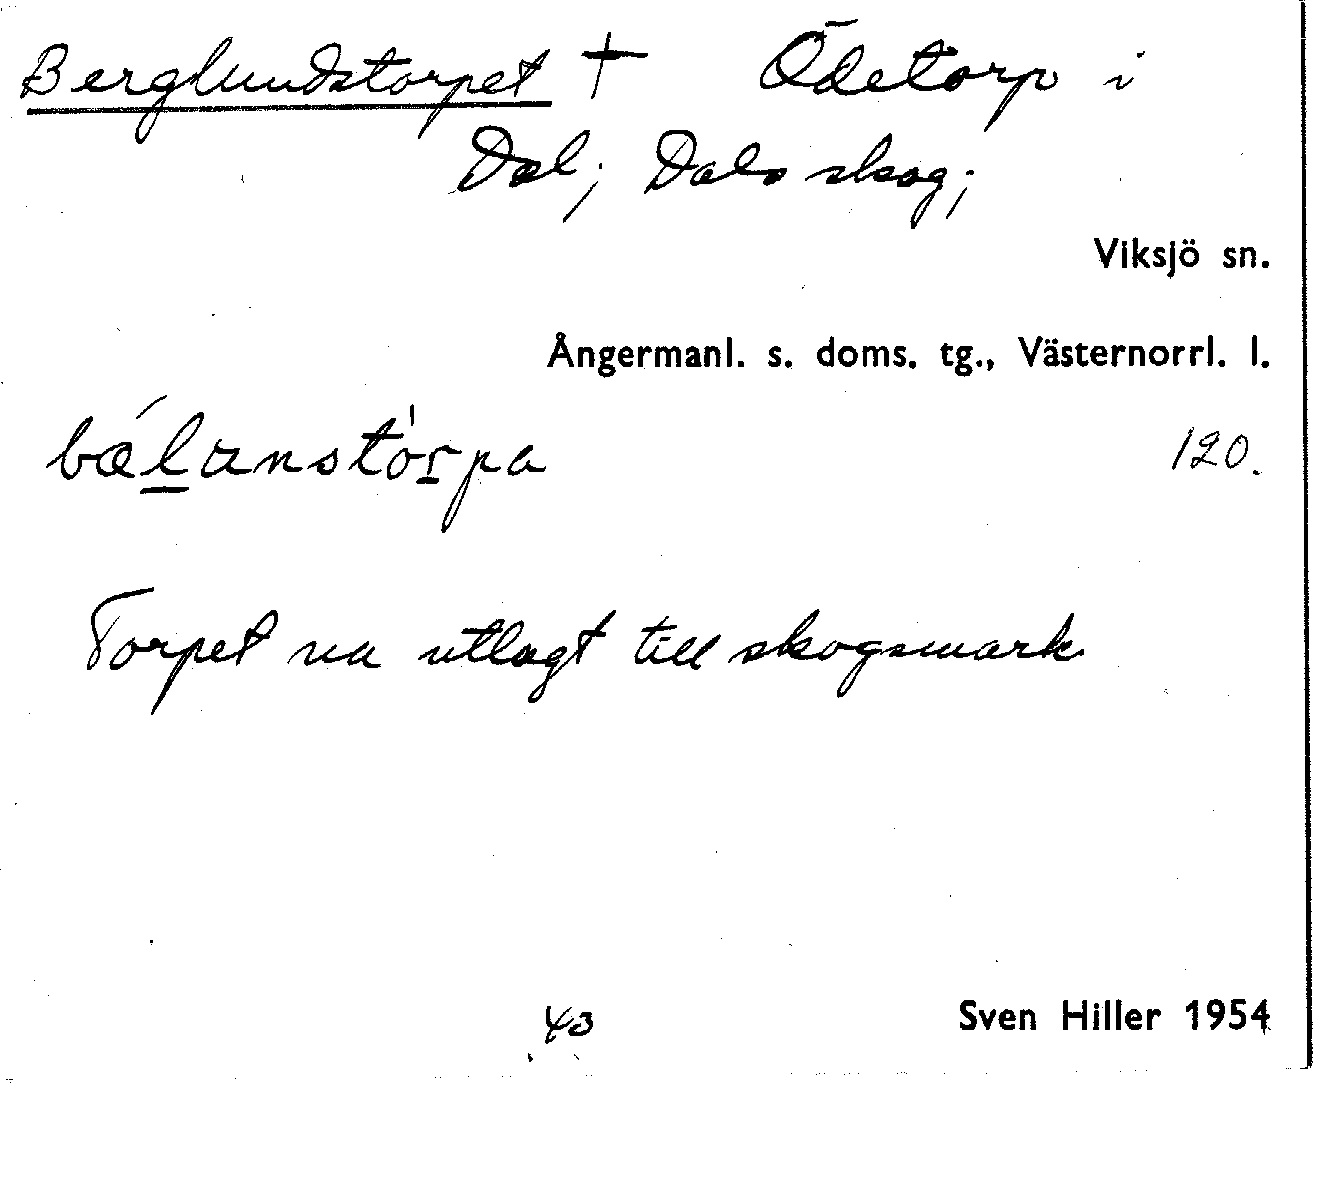 Berglundstorpet † Ödetorp i
Dal; Dals skog;
Viksjö sn.
Ångermanl. s. doms. tg., Västernorrl. l.
120.
Torpet nu utlagt till skogsmark
43
Sven Hiller 1954